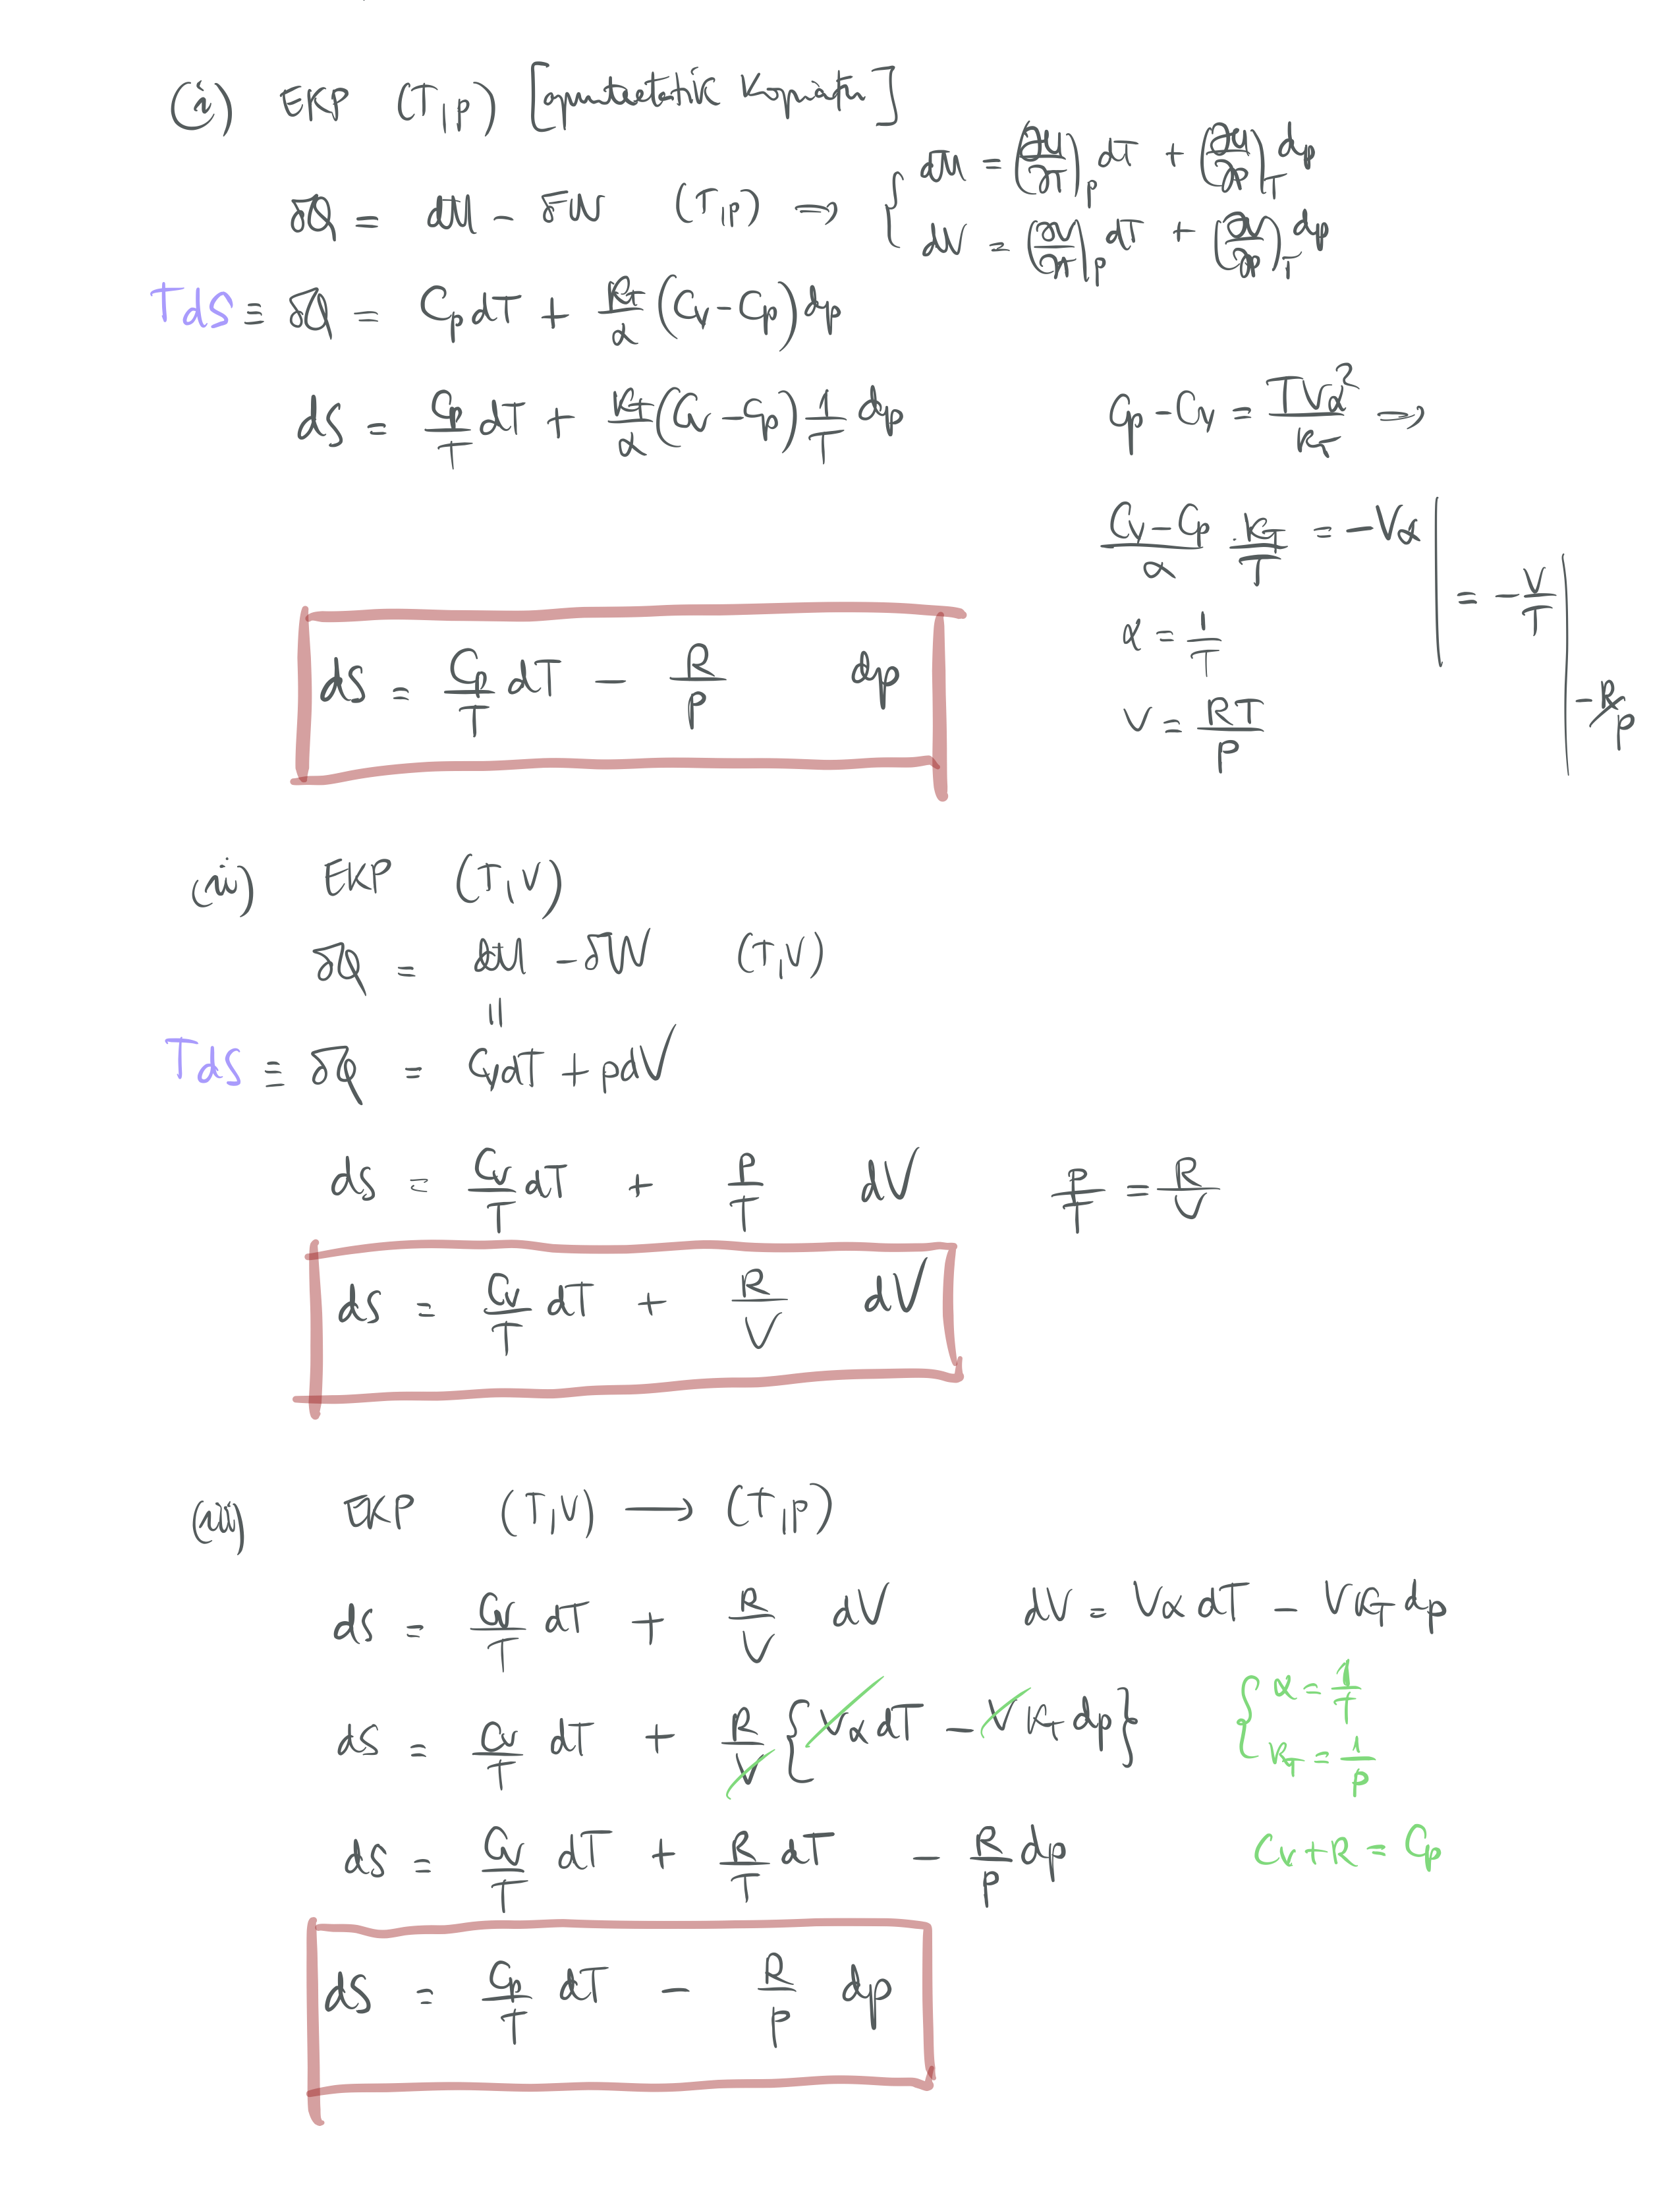 (i) EKP (T,p)
δQ = dU − δW (T,p) ⇒ { dU = (∂U/∂T)_p dT + (∂U/∂p)_T dp
dV = (∂V/∂T)_p dT + (∂V/∂p)_T dp
TdS ≡ δQ = C_p dT + κ_T/α (C_V − C_p) dp
dS = C_p/T dT + κ_T/α (C_V − C_p) 1/T dp
C_p − C_V = TVα²/κ_T ⇒
(C_V − C_p)/α · κ_T/T = −Vα | = −V/T | −R/p
α = 1/T
V = RT/p
dS = C_p/T dT − R/p dp
(ii) EKP (T,V)
δQ = dU − δW (T,V)
||
TdS ≡ δQ = C_V dT + pdV
dS = C_V/T dT + p/T dV p/T = R/V
dS = C_V/T dT + R/V dV
(iii) EKP (T,V) → (T,p)
dS = C_V/T dT + R/V dV dV = Vα dT − Vκ_T dp
dS = C_V/T dT + R/V {Vα dT − Vκ_T dp} { α = 1/T
κ_T = 1/p
dS = C_V/T dT + R/T dT − R/p dp C_V + R = C_p
dS = C_p/T dT − R/p dp